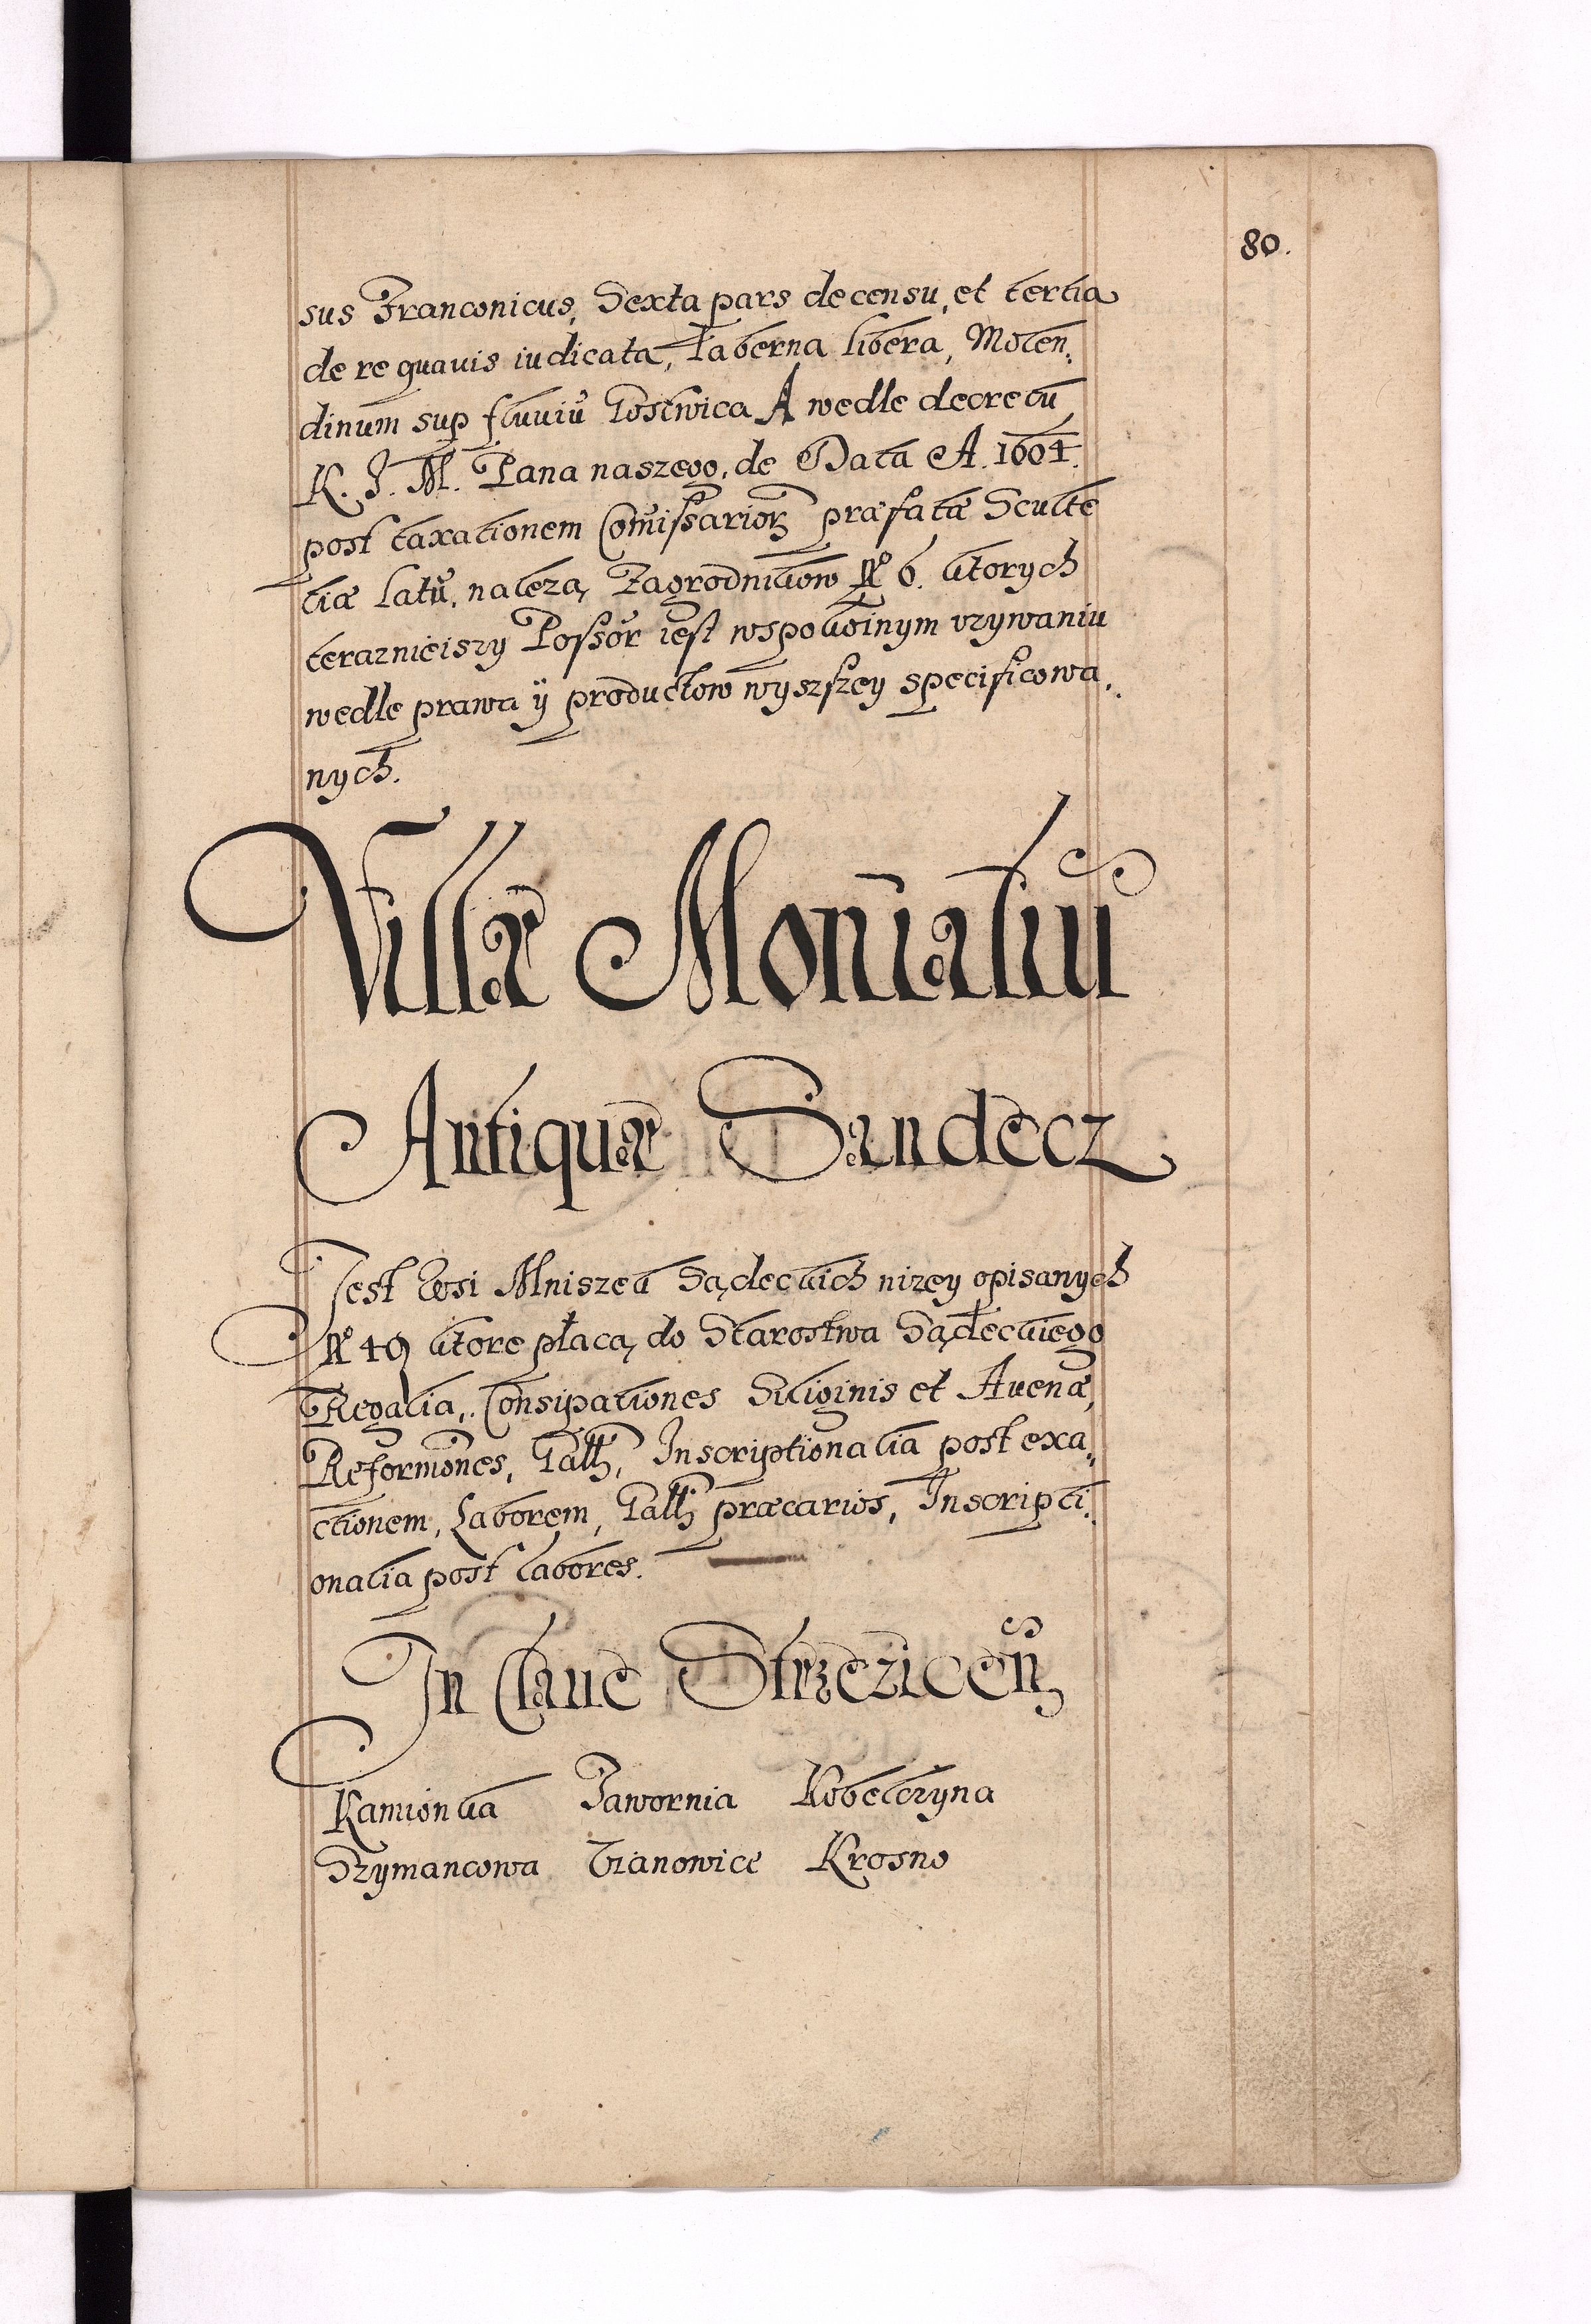 80.
sus Franconicus, Sexta pars de censu, et tertia
de re quauis iudicata, Taberna libera, Molen,
dinum sup fluuiũ Łostwica A wedle decretu
K. J. M. Pana naszego, de Data A. 1604.
post taxationem Com̃issarioꝝ præfatæ Sculte
tiæ Latũ, naleza, Zagrodnikow Nº 6. ktorych
teraznieiszy Poss̃or iest wspokoinym vzywaniu
wedle prawa ÿ productow wyszszey specificowa,
nych.
Villæ Monialiũ
Antiquæ Sandecz
Jest Wsi Mniszek Sądeckich nizey opisanych
Nº 49 ktore płacą do Starostwa Sądeckiego
Regalia, Consipationes Siliginis et Auenæ,
Reformõnes, Pallꝫ, Inscriptionalia post exa,
ctionem, Laborem, Pallꝫ præcarios, Inscripti,
onalia post labores.
In Claue Strzezicen̄
Kamionka Jawornia Kobelczyna
Szymancowa Vianowice Krosno